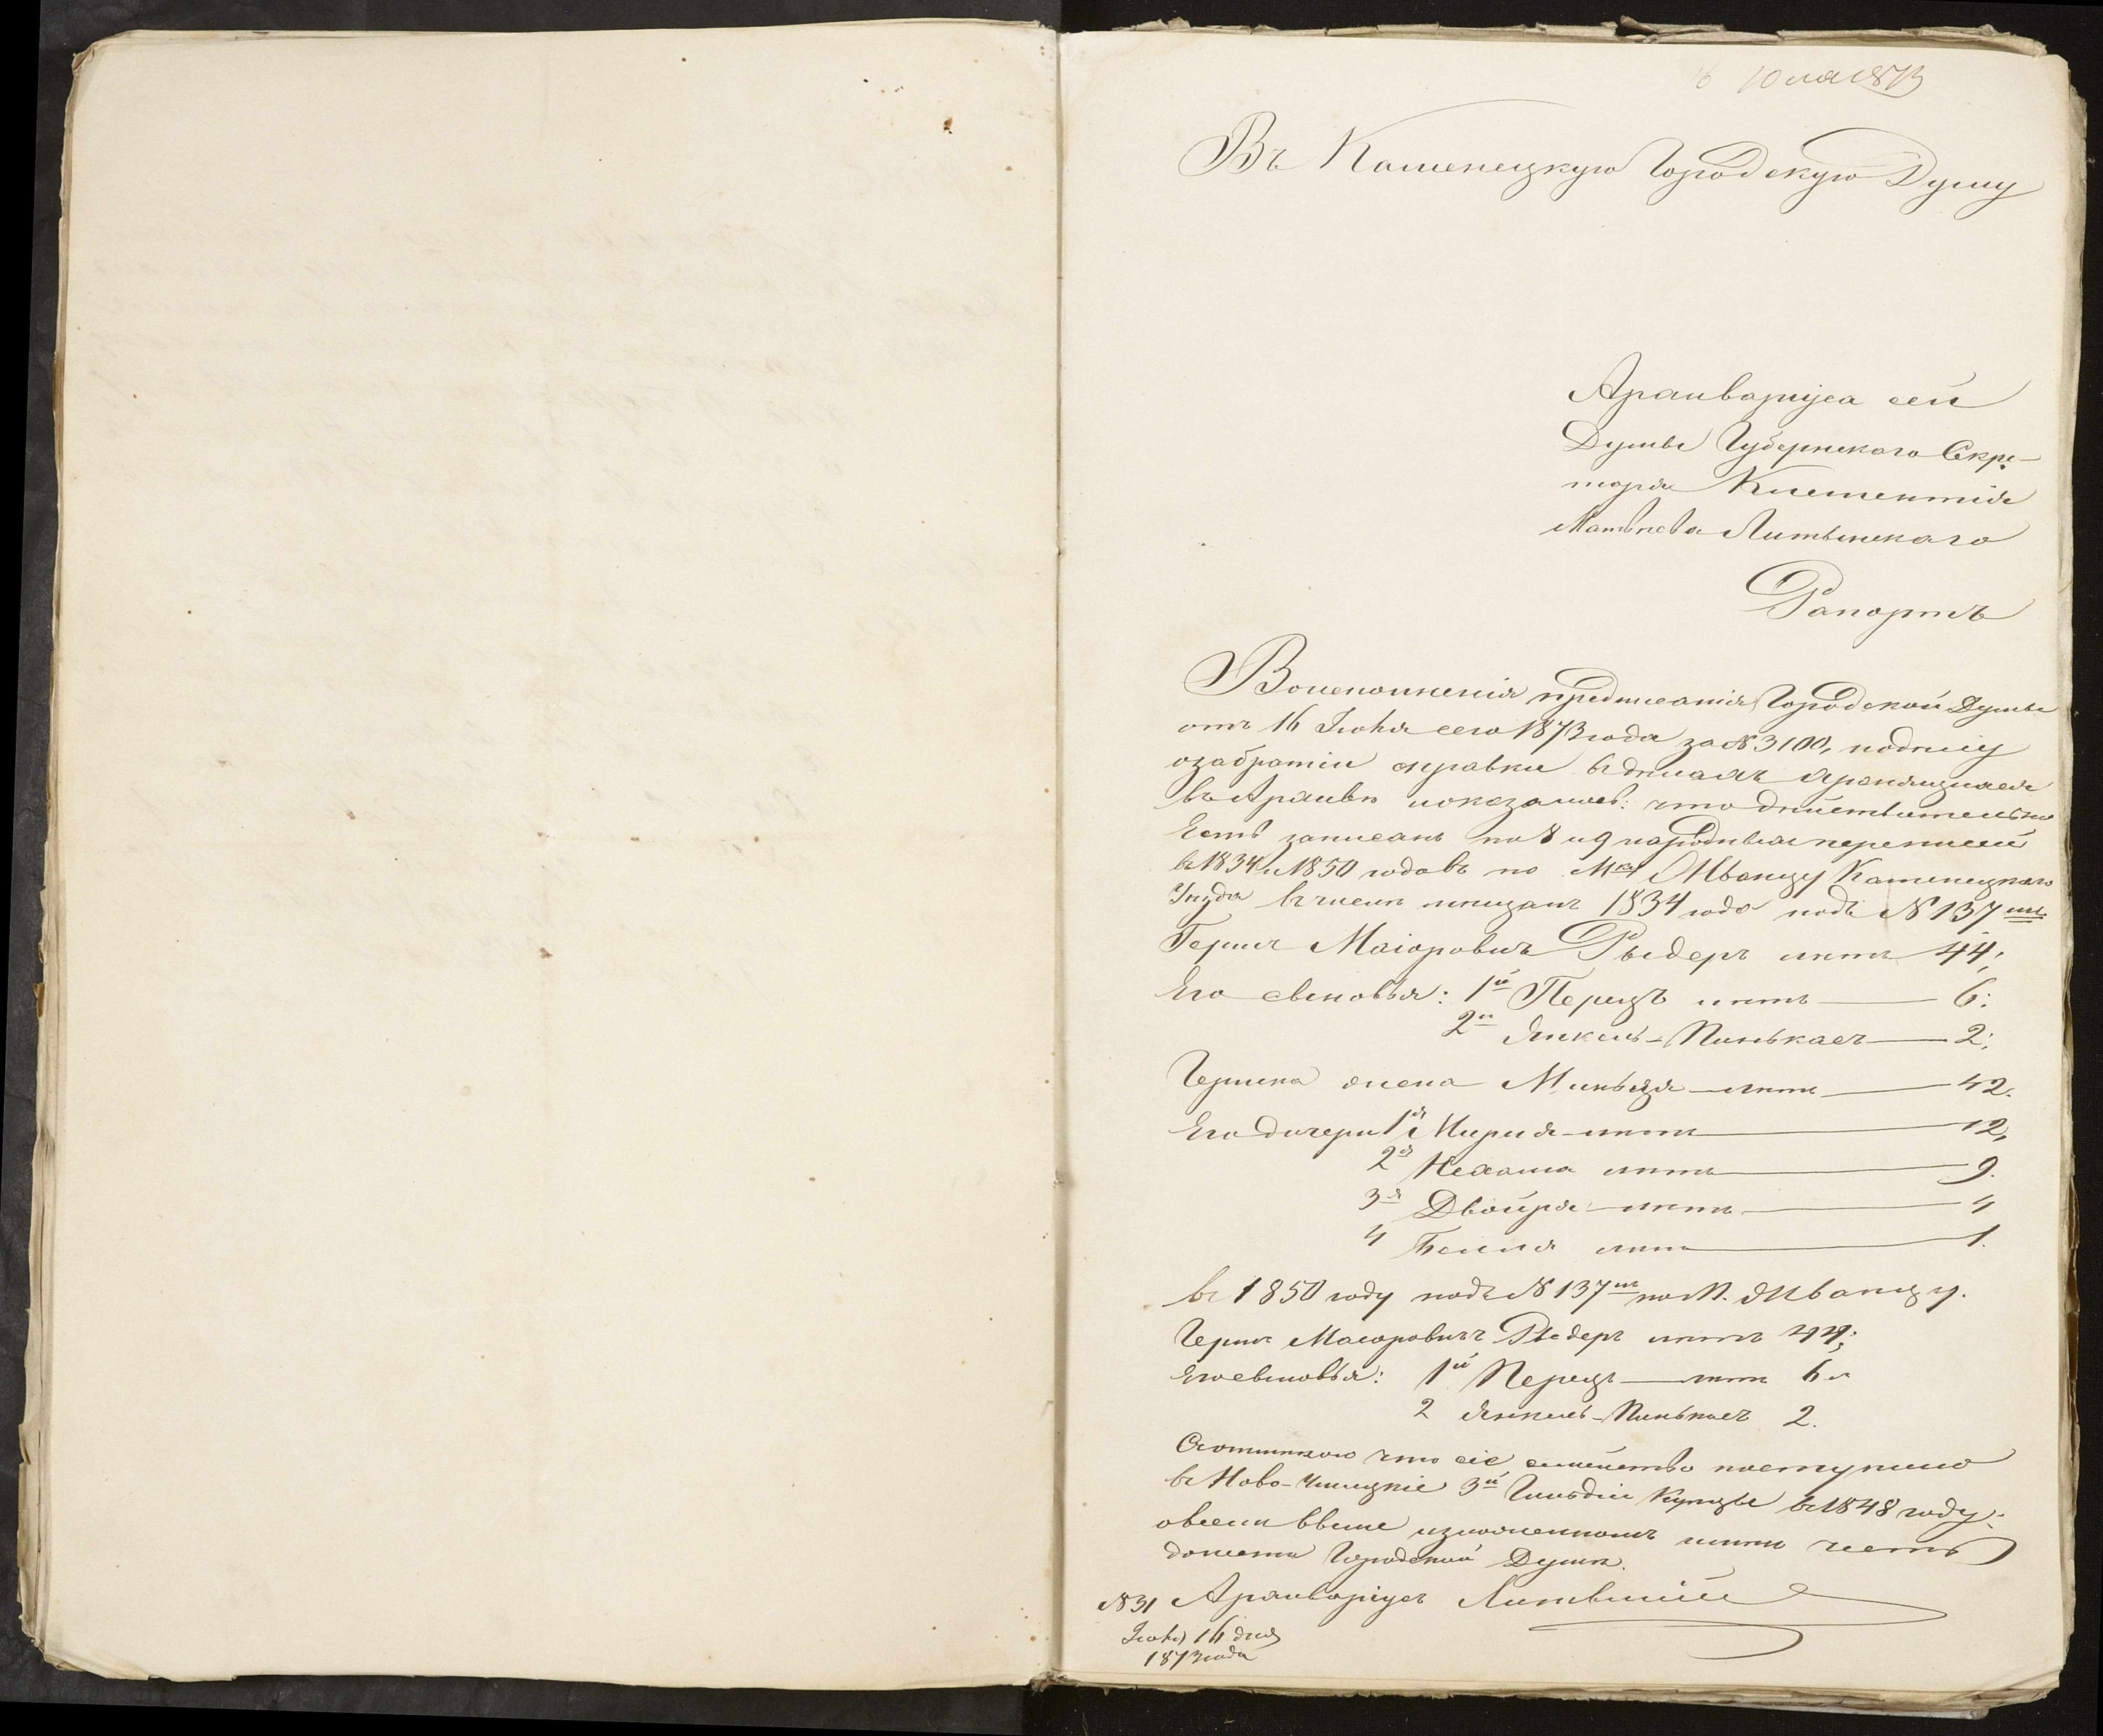 16 Юля 1873
Въ Каменецкую Городскую Думу
Архиваріуса сей
Думы Губернскаго Секре-
таря Клементія
Матвѣева Литвинскаго
Рапортъ
Воисполненія предписанія Городской Думы
отъ 16 Іюня сего 1873 года за № 3100,
озабратіи справки вдѣлахъ хранящихся
въ Архивѣ показалось: что дѣйствительно
Есть записанъ по 8 и 9 народныхъ переписей
въ 1834 и 1850 годовъ по Мку Жванцу Каменецкаго
Уѣзда въ числѣ мѣщанъ 1834 года подъ № 137мъ
Гершъ Маіоровичъ Рыдеръ лѣтъ 44;
Его сыновья: 1й Перецъ лѣтъ 6:
2й Янкель-Пинькасъ 2;
Гершка жена лѣтъ 42.
Его дочери 1я Мирия лѣтъ 12,
2я Нехама лѣтъ 9.
3я Двойря лѣтъ 4
4 Бейля лѣтъ 1.
въ 1850 году подъ № 137мъ по М. Жванцу.
Гершъ Маіоровичъ Рыдеръ лѣтъ 44;
Его сыновья: 1й Перецъ лѣтъ 6
2 Янкель-Пинькасъ 2.
Сотмѣткою что сіе семейство поступило
въ Ново- 3й Гильдіи Купцы въ 1848 году;
овсемъ выше изложенномъ имѣю честь
донести Городской Думѣ.
№ 31 Архиваріусъ Литвинскій
Іюня 16 дня
1873 года